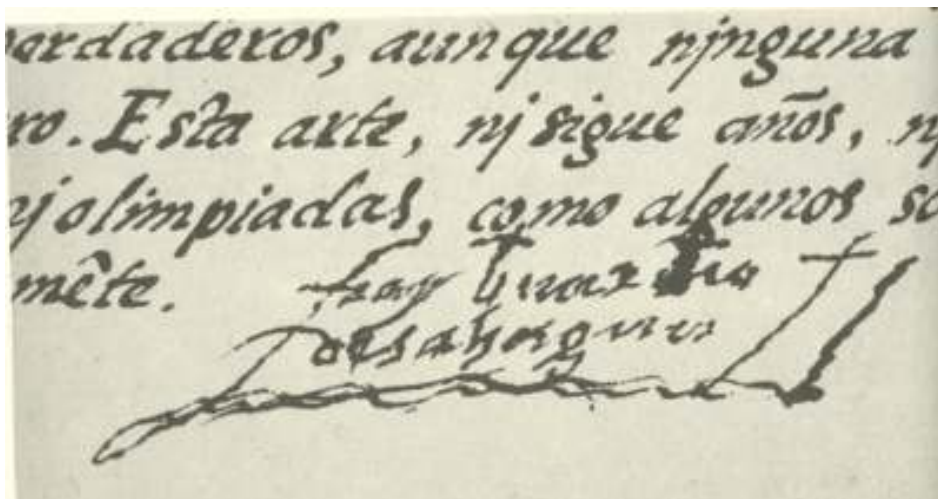 erdaderos, aunque njnguna
ro. Esta arte, nj sigue años, n
nj olimpiadas, como algunos so
mête.
fray
desahagun